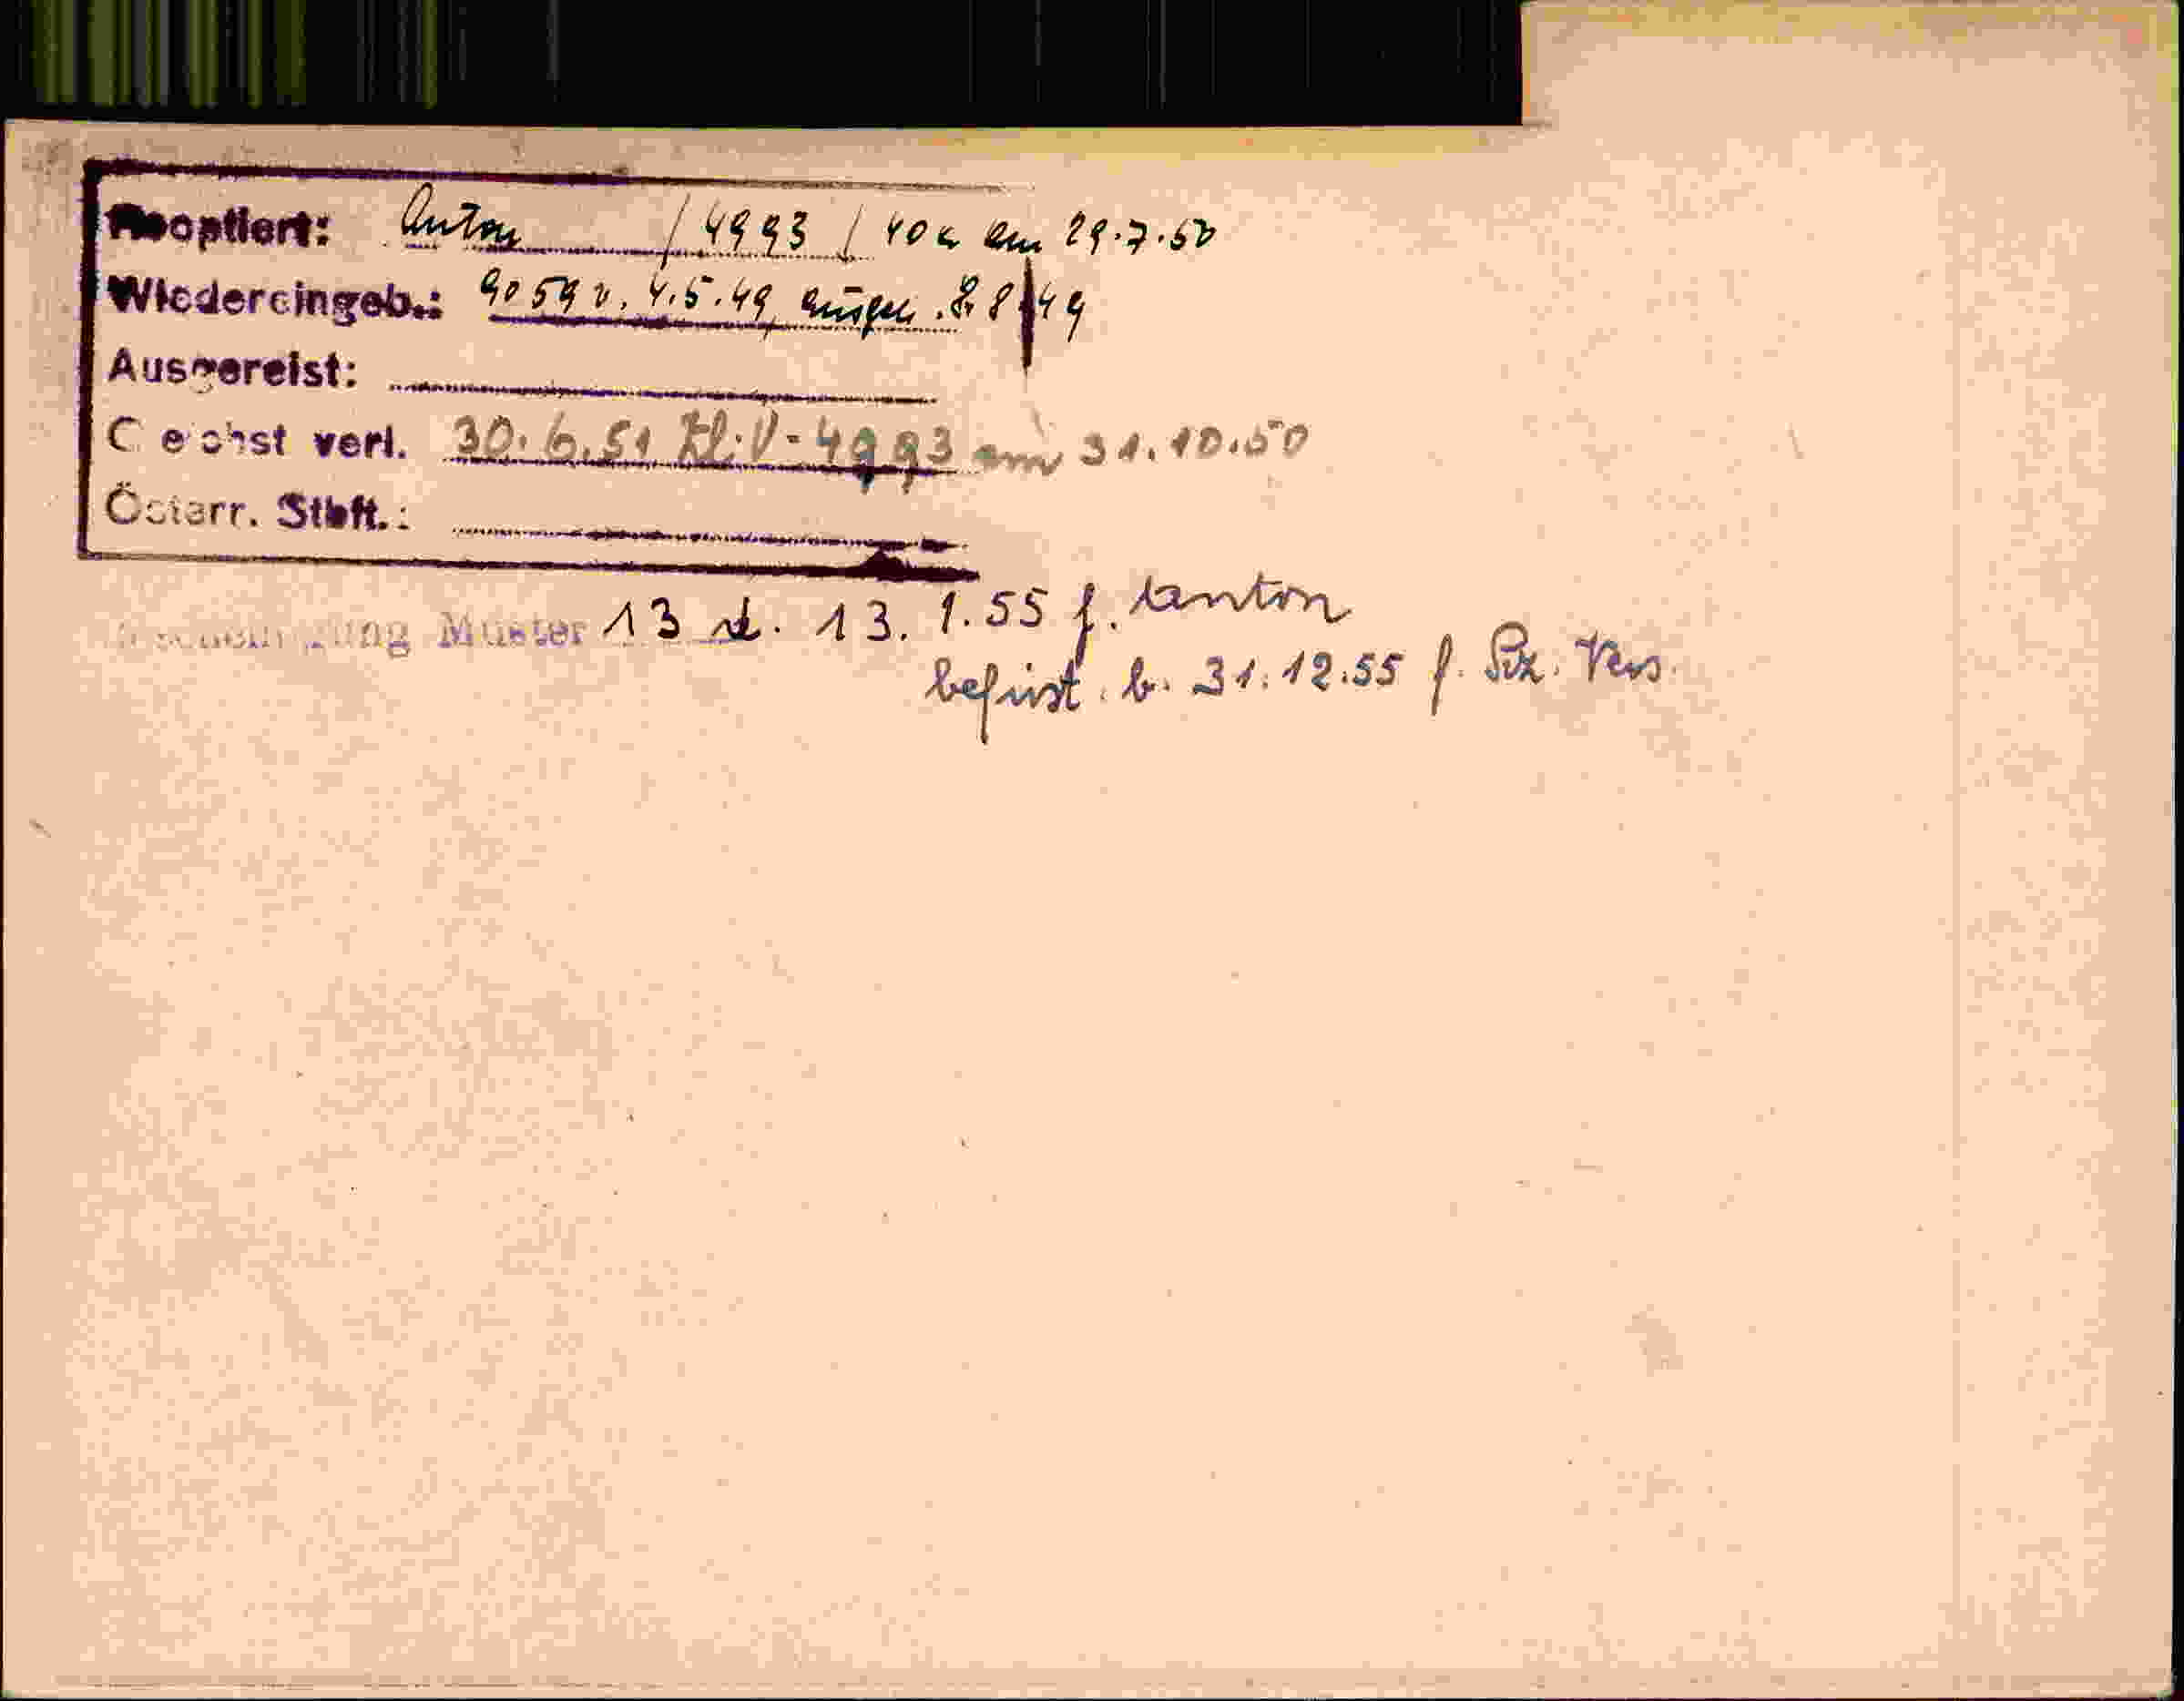 Reoptiert: Anton / 4993 / 40 a am 29.7.50
Wiedereingeb.: 9059 v. 4.5.49 8/49
Ausgereist:
verl. 30.6.51 Zl: V-4993 am 31.10.50
Österr. Stbft.:
Bescheinigung Muster 13 d. 13. 1.55 f. Anton
befrist. b. 31.12.55 f. Soz. Vers.